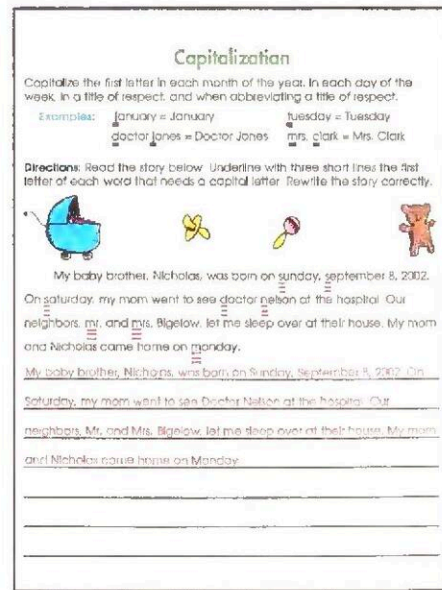 Capitalization
Capitalize the first letter in each month of the year, in each day of the
week, in a title of respect, and when abbreviating a title of respect.
Examples: january = January tuesday = Tuesday
doctor jones = Doctor Jones mrs. clark = Mrs. Clark
Directions: Read the story below. Underline with three short lines the first
letter of each word that needs a capital letter. Rewrite the story correctly.
My baby brother, Nicholas, was born on sunday, september 8, 2002.
On saturday, my mom went to see doctor nelson at the hospital. Our
neighbors, mr. and mrs. Bigelow, let me sleep over at their house. My mom
and Nicholas came home on monday.
My baby brother, Nicholas, was born on Sunday, September 8, 2002. On
Saturday, my mom went to see Doctor Nelson at the hospital. Our
neighbors, Mr. and Mrs. Bigelow, let me sleep over at their house. My mom
and Nicholas came home on Monday.